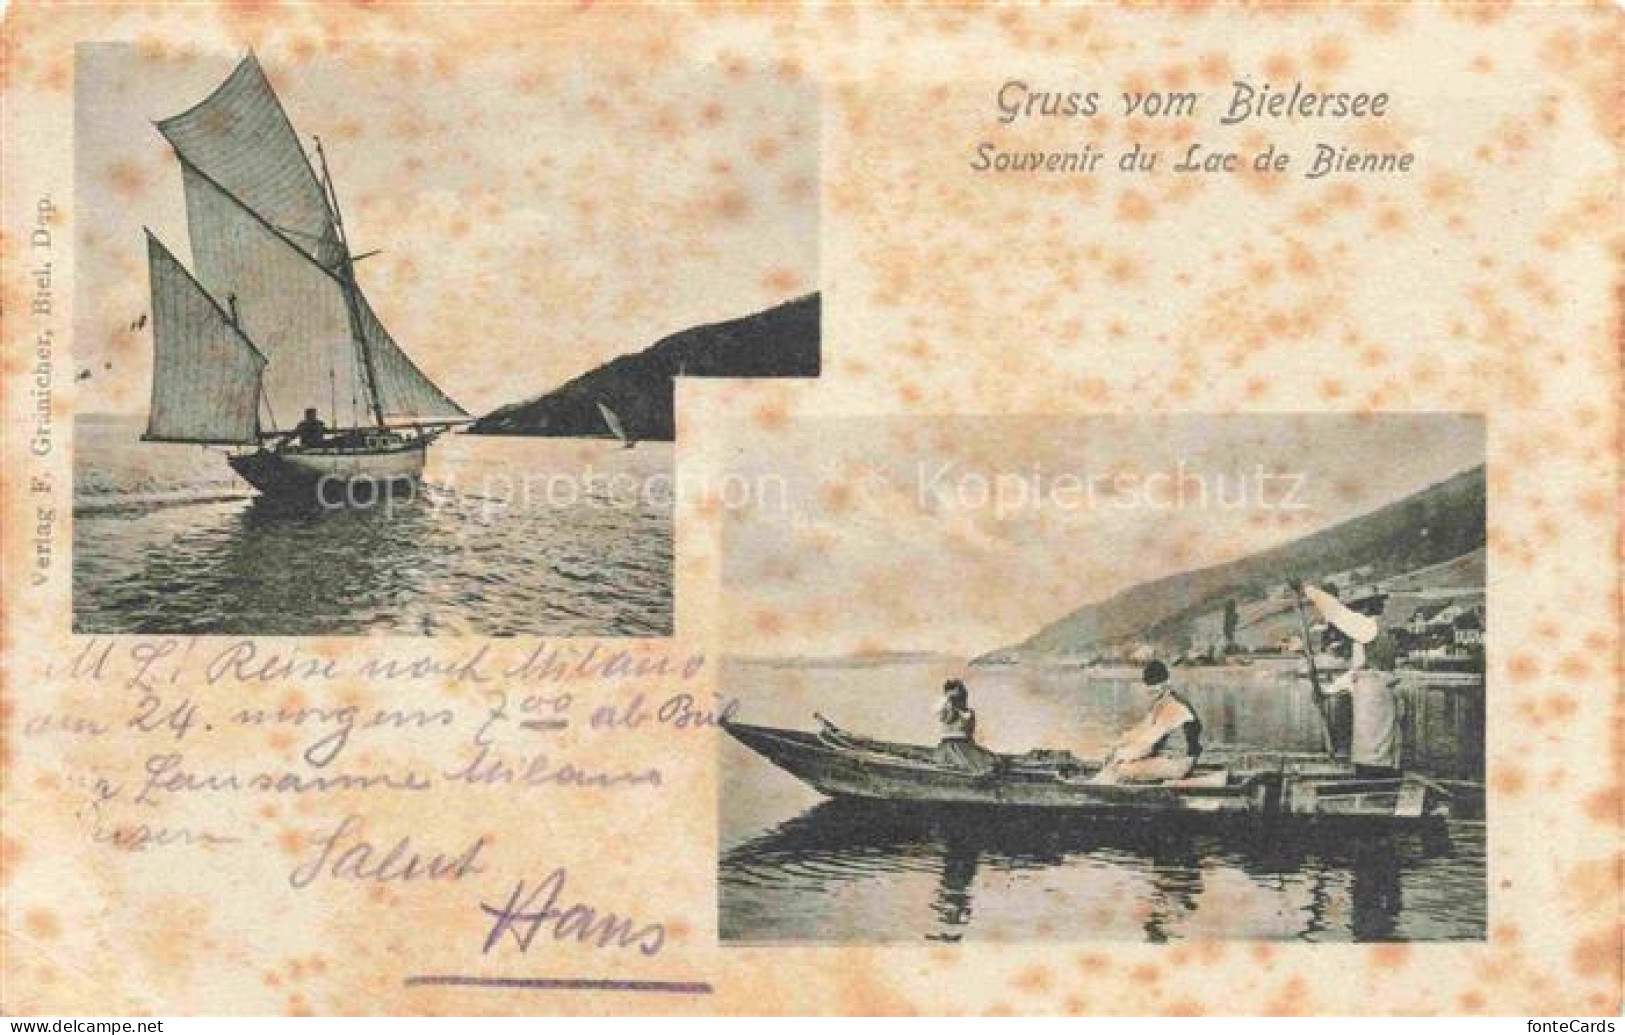 Gruss vom Bielersee
Souvenir du Lac de Bienne
Verlag F. Gränicher, Biel. Dép.
copy protection Kopierschutz
M L! Reise nach Milano
am 24. morgens 7 00 ab Biel
Lausanne Milano
Salut
Hans
www.delcampe.net
fonteCards